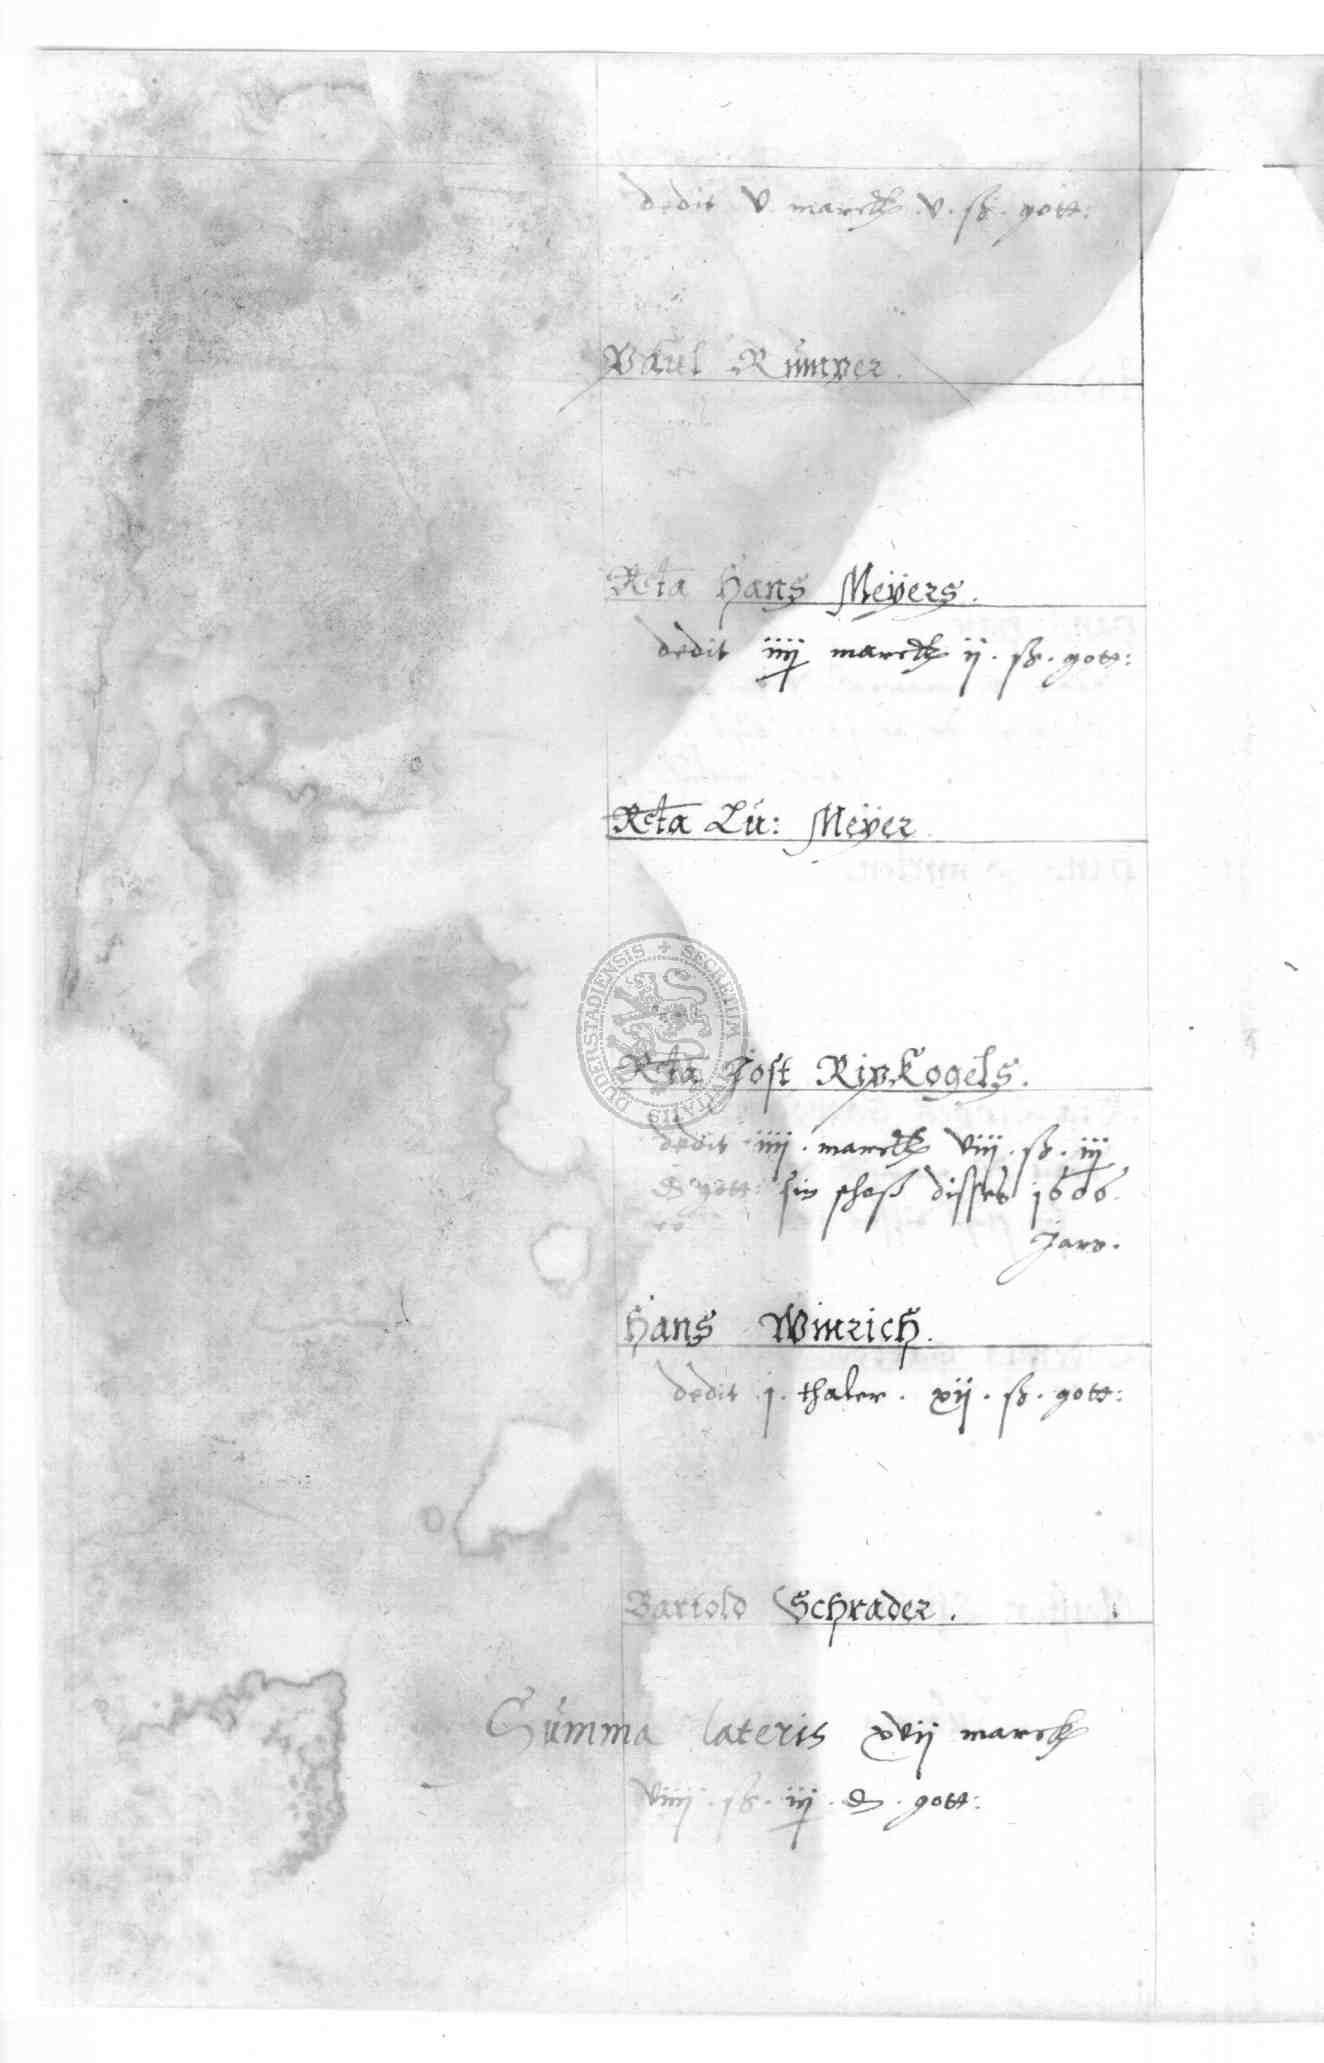 dedit v. marck .v. ß. gott:
Paul Rümper.
Rcta Hans Meÿers.
dedit iiij marck ij. ß. gott:
Rcta Lü: Meÿer
DUDERSTADIENSIS + SECRETUM CIVITATIS
Rcta Jost Ripkogels.
dedit iiij. marck viij. ß. iij
₰ gott: sin schoß disses 1606.
Jars.
Hans Winrich.
dedit .j. thaler. xij. ß. gott:
Bartold Schrader.
Summa lateris xvij marck
viiij. ß. iij. ₰. gott: